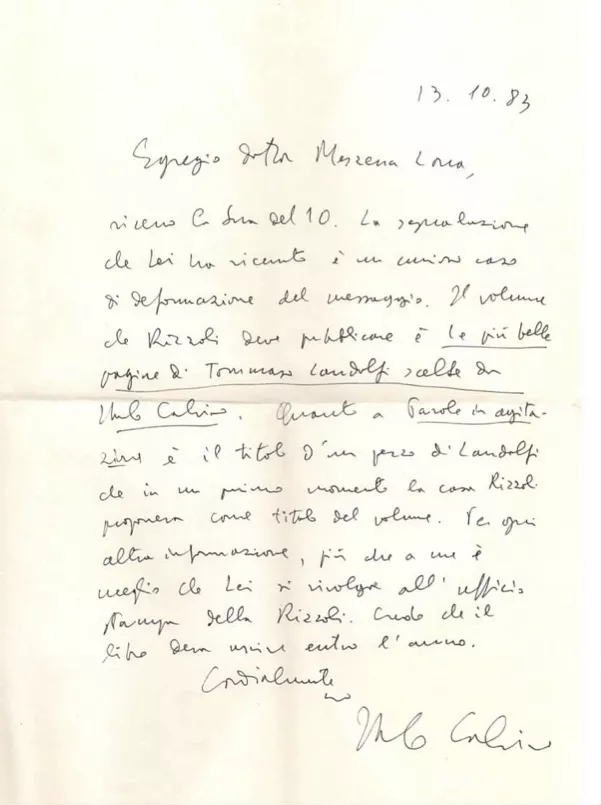 13. 10. 83
Egregio dottor Messena Lorea,
ricevo la Sua del 10. La segnalazione
che Lei ha ricevuto è un curioso caso
di deformazione del messaggio. Il volume
che Rizzoli deve pubblicare è Le più belle
pagine di Tommaso Landolfi scelte da
Italo Calvino. Quanto a Parole in agita-
zione è il titolo d'un pezzo di Landolfi
che in un primo momento la casa Rizzoli
proponeva come titolo del volume. Per ogni
altra informazione, più che a me è
meglio che Lei si rivolga all'ufficio
stampa della Rizzoli. Credo che il
libro deva uscire entro l'anno.
Cordialmente
suo
Italo Calvino